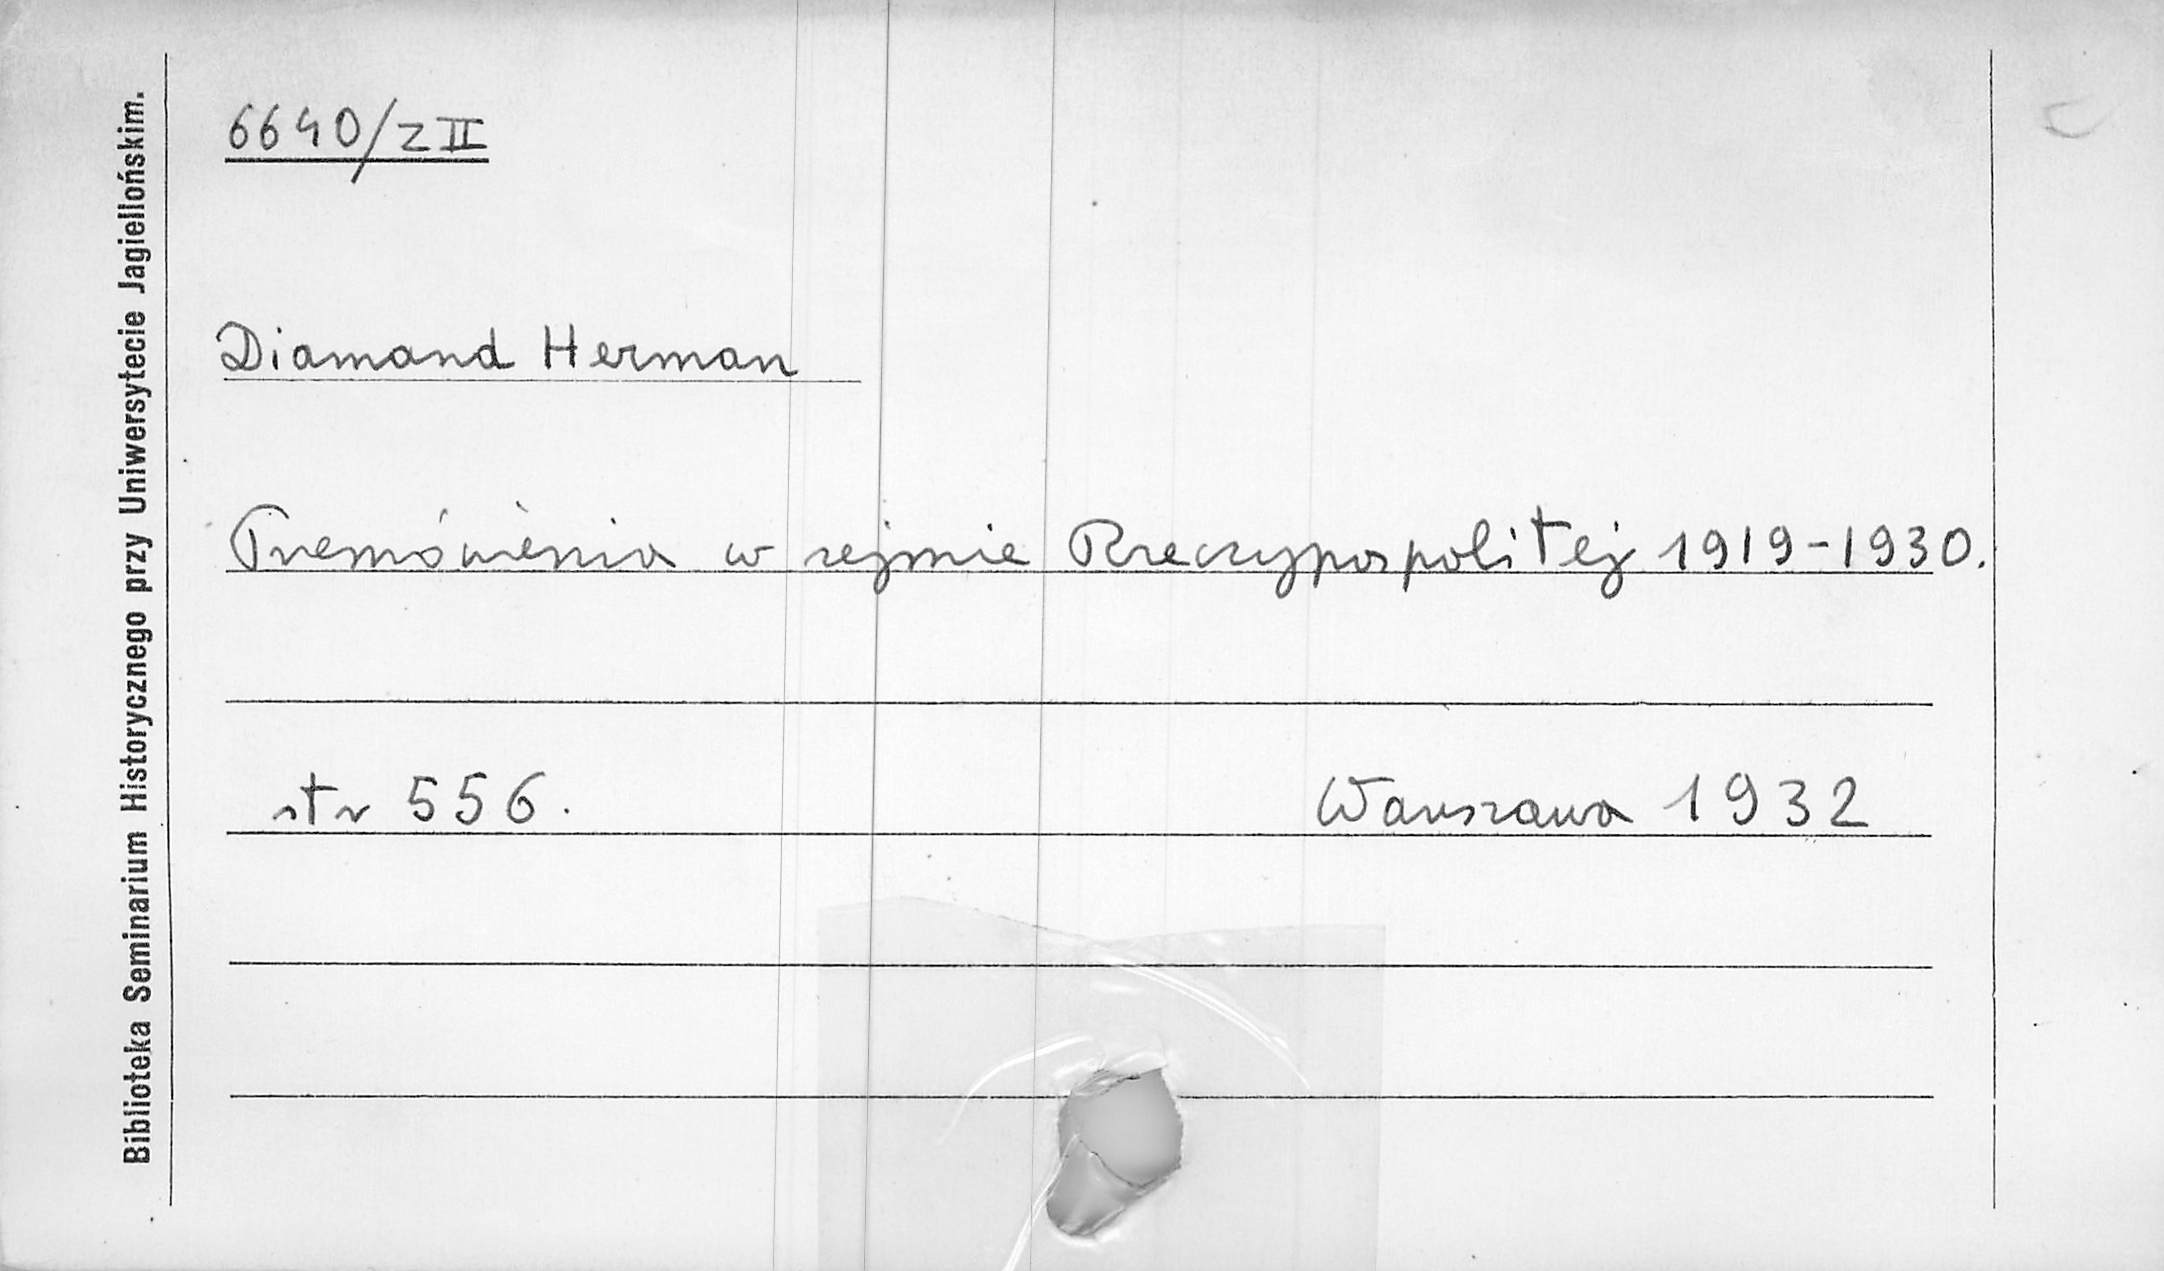 Biblioteka Seminarium Historycznego przy Uniwersytecie Jagiellońskim.
6640/z II
Diamand Herman
Przemówienia w sejmie Rzeczypospolitej 1919-1930.
str 556. Warszawa 1932